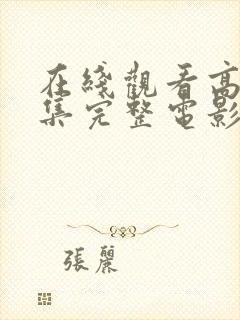 在綫觀看高
集完整電影
張麗